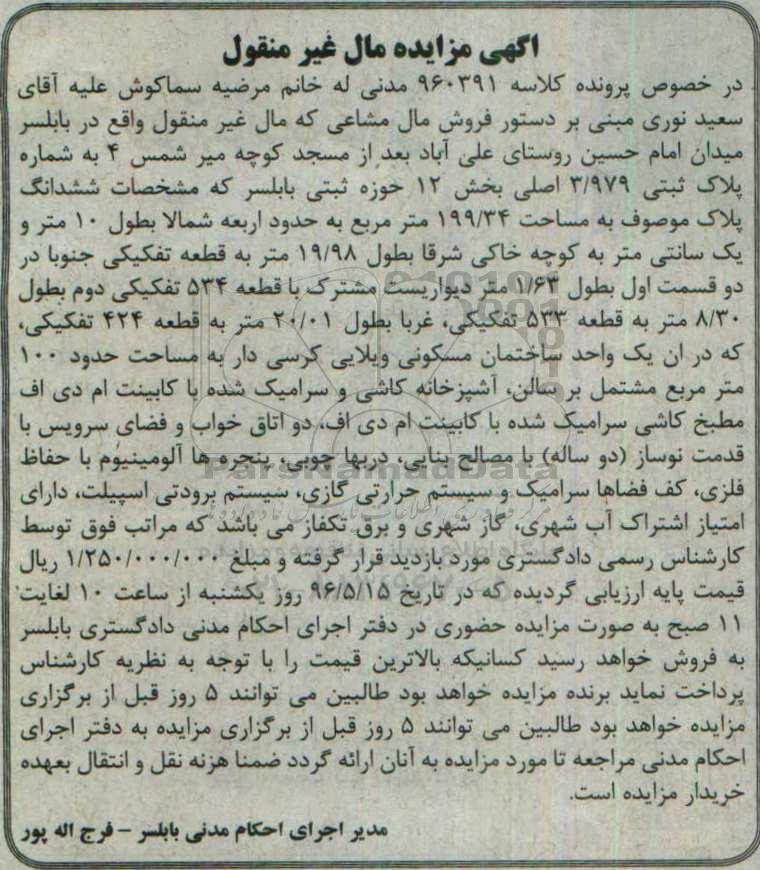 اگهی مزایده مال غیر منقول
در خصوص پرونده کلاسه ۹۶۰۳۹۱ مدنی له خانم مرضیه سماکوش علیه آقای
سعید نوری مبنی بر دستور فروش مال مشاعی که مال غیر منقول واقع در بابلسر
میدان امام حسین روستای علی آباد بعد از مسجد کوچه میر شمس ۴ به شماره
پلاک ثبتی ۳/۹۷۹ اصلی بخش ۱۲ حوزه ثبتی بابلسر که مشخصات ششدانگ
پلاک موصوف به مساحت ۱۹۹/۳۴ متر مربع به حدود اربعه شمالا بطول ۱۰ متر و
یک سانتی متر به کوچه خاکی شرقا بطول ۱۹/۹۸ متر به قطعه تفکیکی جنوبا در
دو قسمت اول بطول ۱/۶۳ متر دیواریست مشترک با قطعه ۵۳۴ تفکیکی دوم بطول
۸/۳۰ متر به قطعه ۵۳۳ تفکیکی، غربا بطول ۲۰/۰۱ متر به قطعه ۴۲۴ تفکیکی،
که در ان یک واحد ساختمان مسکونی ویلایی کرسی دار به مساحت حدود ۱۰۰
متر مربع مشتمل بر سالن، آشپزخانه کاشی و سرامیک شده با کابینت ام دی اف
مطبخ کاشی سرامیک شده با کابینت ام دی اف، دو اتاق خواب و فضای سرویس با
قدمت نوساز (دو ساله) با مصالح بنایی، دربها چوبی، پنجره ها آلومینیوم با حفاظ
فلزی، کف فضاها سرامیک و سیستم حرارتی گازی، سیستم برودتی اسپیلت، دارای
امتیاز اشتراک آب شهری، گاز شهری و برق تکفاز می باشد که مراتب فوق توسط
کارشناس رسمی دادگستری مورد بازدید قرار گرفته و مبلغ ۱/۲۵۰/۰۰۰/۰۰۰ ریال
قیمت پایه ارزیابی گردیده که در تاریخ ۹۶/۵/۱۵ روز یکشنبه از ساعت ۱۰ لغایت
۱۱ صبح به صورت مزایده حضوری در دفتر اجرای احکام مدنی دادگستری بابلسر
به فروش خواهد رسید کسانیکه بالاترین قیمت را با توجه به نظریه کارشناس
پرداخت نماید برنده مزایده خواهد بود طالبین می توانند ۵ روز قبل از برگزاری
مزایده خواهد بود طالبین می توانند ۵ روز قبل از برگزاری مزایده به دفتر اجرای
احکام مدنی مراجعه تا مورد مزایده به آنان ارائه گردد ضمنا هزنه نقل و انتقال بعهده
خریدار مزایده است.
مدیر اجرای احکام مدنی بابلسر - فرج اله پور
ParsNamadData